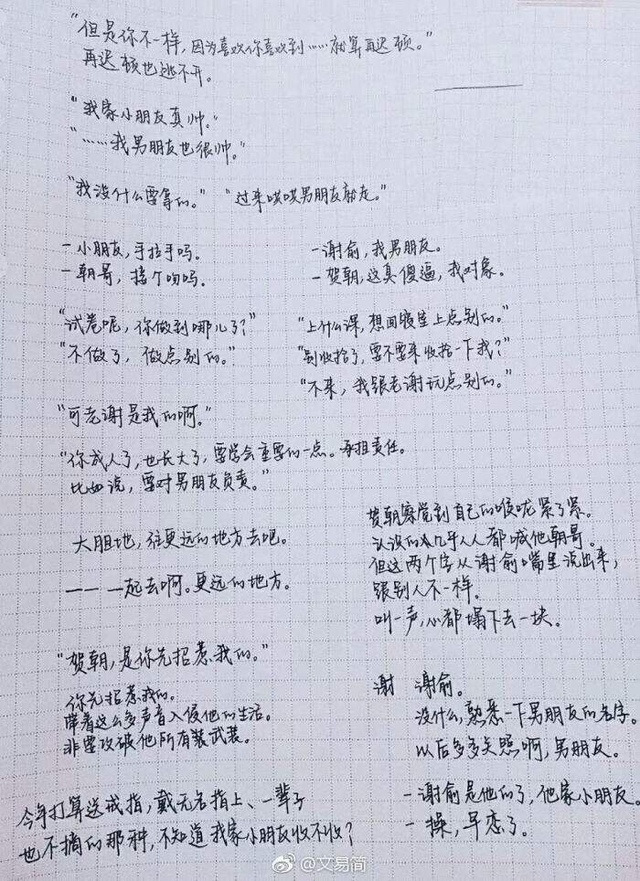 "但是你不一样，因为喜欢你喜欢到……就算再迟顿。"
再迟顿也逃不开。
"我家小朋友真帅。"
"……我男朋友也很帅。"
"我没什么要拿的。" "过来哄哄男朋友就走。"
－小朋友，手拉手吗。
－朝哥，接个吻吗。
－谢俞，我男朋友。
－贺朝，这真傻逼，我对象。
"试卷呢，你做到哪儿了？"
"不做了，做点别的。"
"上什么课，想回寝室上点别的。"
"别收拾了，要不要来收拾一下我？"
"不来，我跟老谢玩点别的。"
"可老谢是我的啊。"
"你成人了，也长大了，要学会重要的一点。承担责任。
比如说，要对男朋友负责。"
大胆地，往更远的地方去吧。
——一起去啊。更远的地方。
贺朝察觉到自己的喉咙紧了紧。
认识的人几乎人人都喊他朝哥。
但这两个字从谢俞嘴里说出来，
跟别人不一样。
叫一声，心都塌下去一块。
"贺朝，是你先招惹我的。"
你先招惹我的。
带着这么多声音入侵他的生活。
非要攻破他所有装武装。
谢 谢俞。
没什么，熟悉一下男朋友的名字。
以后多多关照啊，男朋友。
今年打算送戒指，戴无名指上、一辈子
也不摘的那种，不知道我家小朋友收不收？
－谢俞是他的了，他家小朋友。
－操，早恋了。
@文易简